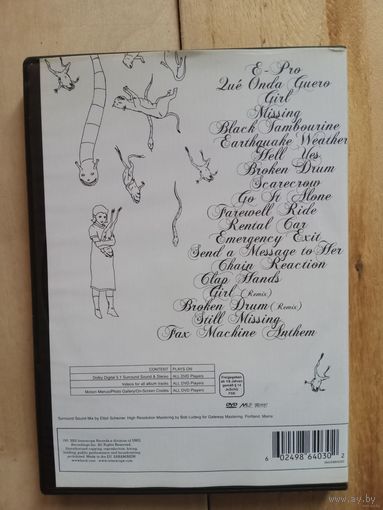 E-Pro
Qué Onda Guero
Girl
Missing
Black Tambourine
Earthquake Weather
Hell Yes
Broken Drum
Scarecrow
Go It Alone
Farewell Ride
Rental Car
Emergency Exit
Send a Message to Her
Chain Reaction
Clap Hands
Girl (Remix)
Broken Drum (Remix)
Still Missing
Fax Machine Anthem
CONTENT PLAYS ON
Dolby Digital 5.1 Surround Sound & Stereo ALL DVD Players
Videos for all album tracks ALL DVD Players
Motion Menus/Photo Gallery/On-Screen Credits ALL DVD Players
Freigegeben
Surround Sound Mix by Elliot Scheiner. High Resolution Mastering by Bob Ludwig for Gateway Mastering, Portland, Maine
DVD
6 02498 64030 2
ay.by